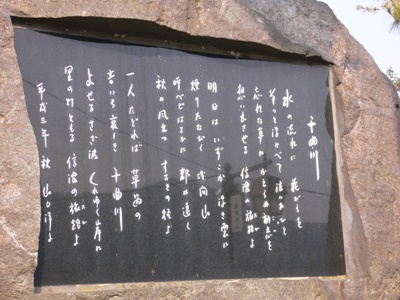 千曲川
水の流れに 花びらを
そっと浮かべて 泣いたひと
忘れな草 かえらぬ初恋を
想い出させる 信濃の旅路よ
明日はいずこか 浮き雲に
煙りたなびく 浅間山
呼べどはるかに 都は遠く
秋の風立つ すすきの径よ
一人たどれば 草笛の
音いろ哀しき 千曲川
よせるさざ波 くれゆく岸に
里の灯ともる 信濃の旅路よ
平成三年 秋 山口洋子